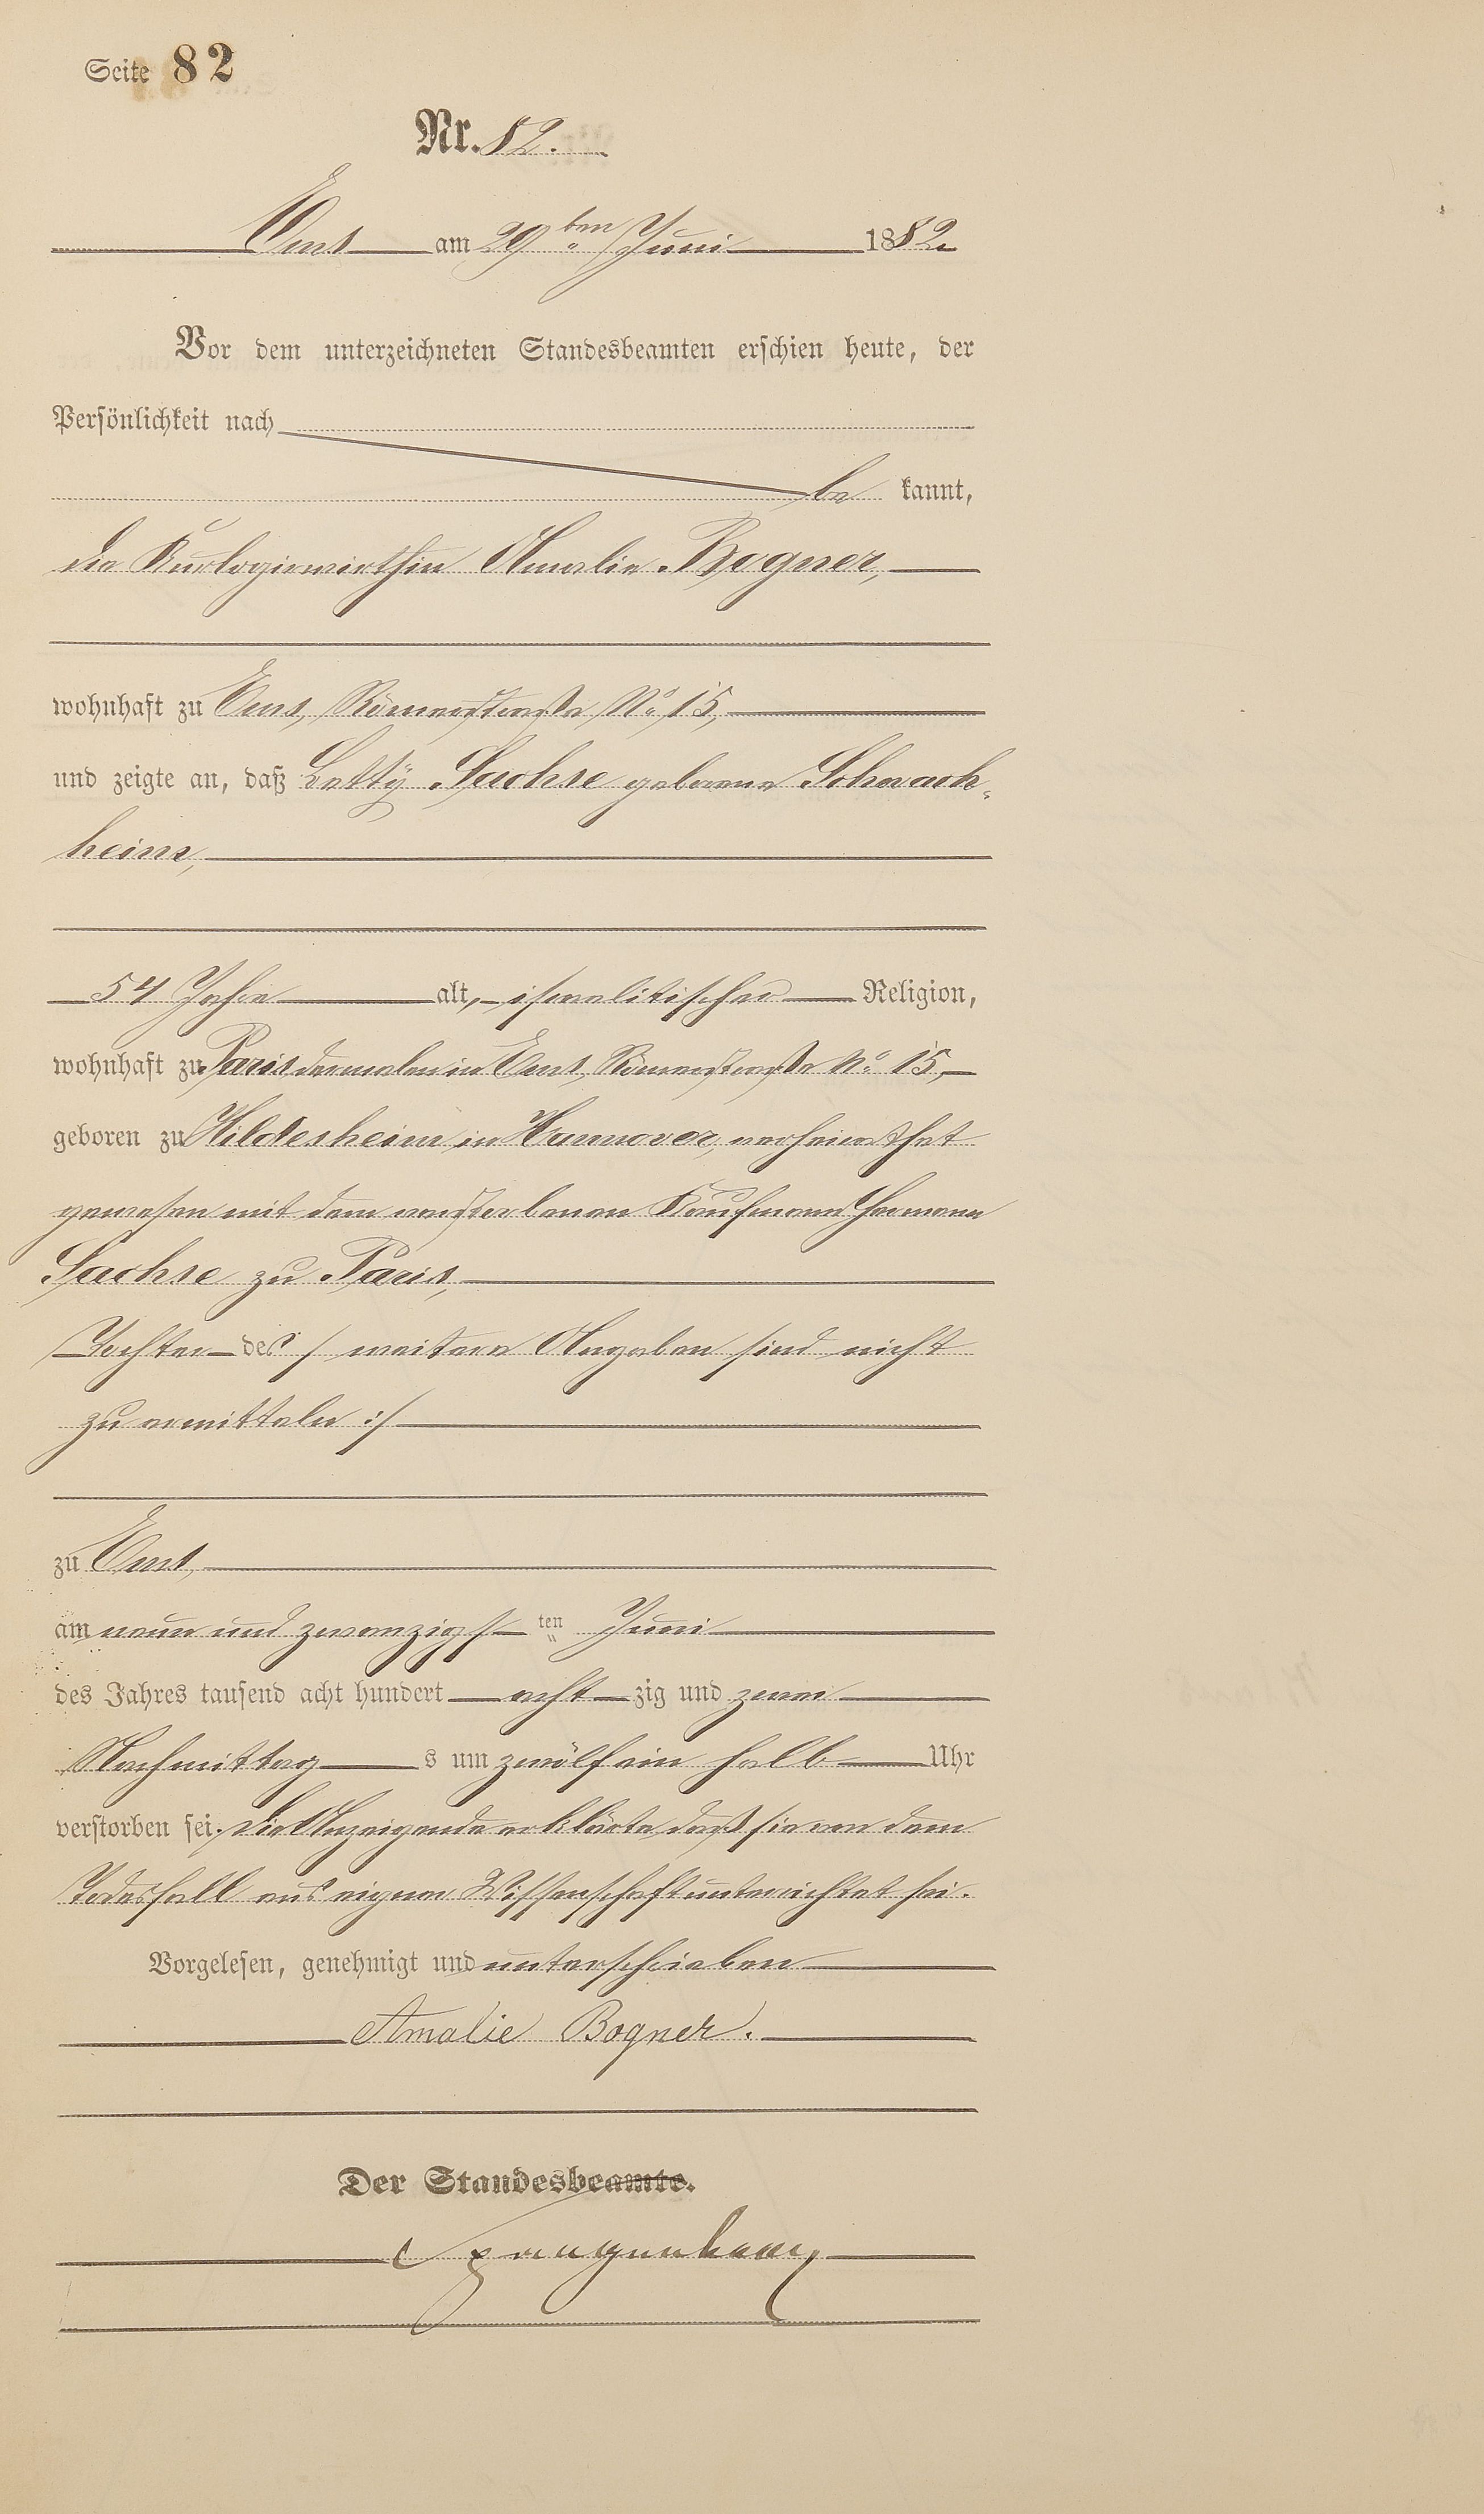 Seite 82
Nr. 82.
Ems am 29ten Juni 1882.
Vor dem unterzeichneten Standesbeamten erschien heute, der
Persönlichkeit nach
be kannt,
die Kurlogirwirthin Amalie Bogner,
wohnhaft zu Ems, Römerstraße No 15,
und zeigte an, daß Betty Sachse geborene Schwach-
heim,
54 Jahre alt, israelitischer Religion,
wohnhaft zu Paris dermalen in Ems, Römerstraße No 15,
geboren zu Hildesheim in Hannover, verheirathet
gewesen mit dem verstorbenen Kaufmann Hermann
Sachse zu Paris,
Tochter des / weitere Angaben sind nicht
zu ermitteln :/
zu Ems,
am neun und zwanzigsten Juni
des Jahres tausend acht hundert acht zig und zwei
Nachmittag s um zwölf ein halb Uhr
verstorben sei. Die Anzeigende erklärte, daß sie von dem
Todesfall aus eigner Wissenschaft unterrichtet sei.
Vorgelesen, genehmigt und unterschrieben
Amalie Bogner.
Der Standesbeamte.